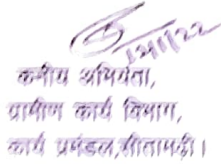 कनीय अभियंता,
ग्रामीण कार्य विभाग,
कार्य प्रमंडल,सीतामढ़ी।